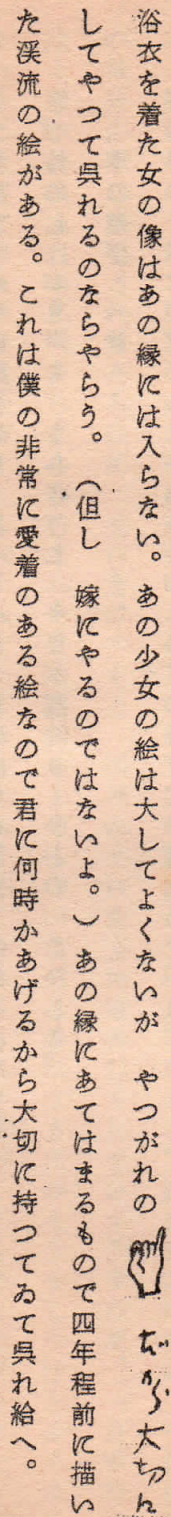 浴衣を着た女の像はあの縁には入らない。あの少女の絵は大してよくないが　やつがれの　だから大切に
してやつて呉れるのならやらう。（但し　嫁にやるのではないよ。）あの縁にあてはまるもので四年程前に描い
た渓流の絵がある。これは僕の非常に愛着のある絵なので君に何時かあげるから大切に持つてゐて呉れ給へ。